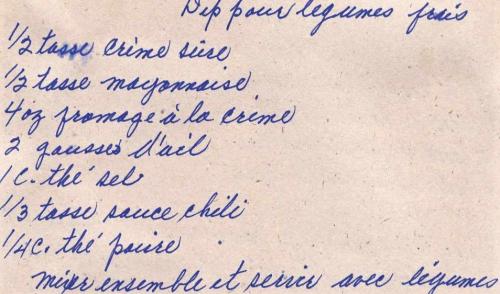 Dip pour légumes frais
1/2 tasse crème sûre
1/2 tasse mayonnaise
4 oz fromage à la crème
2 gousses d'ail
1 c. thé sel
1/3 tasse sauce chili
1/4 c. thé poivre
mixer ensemble et servir avec légumes